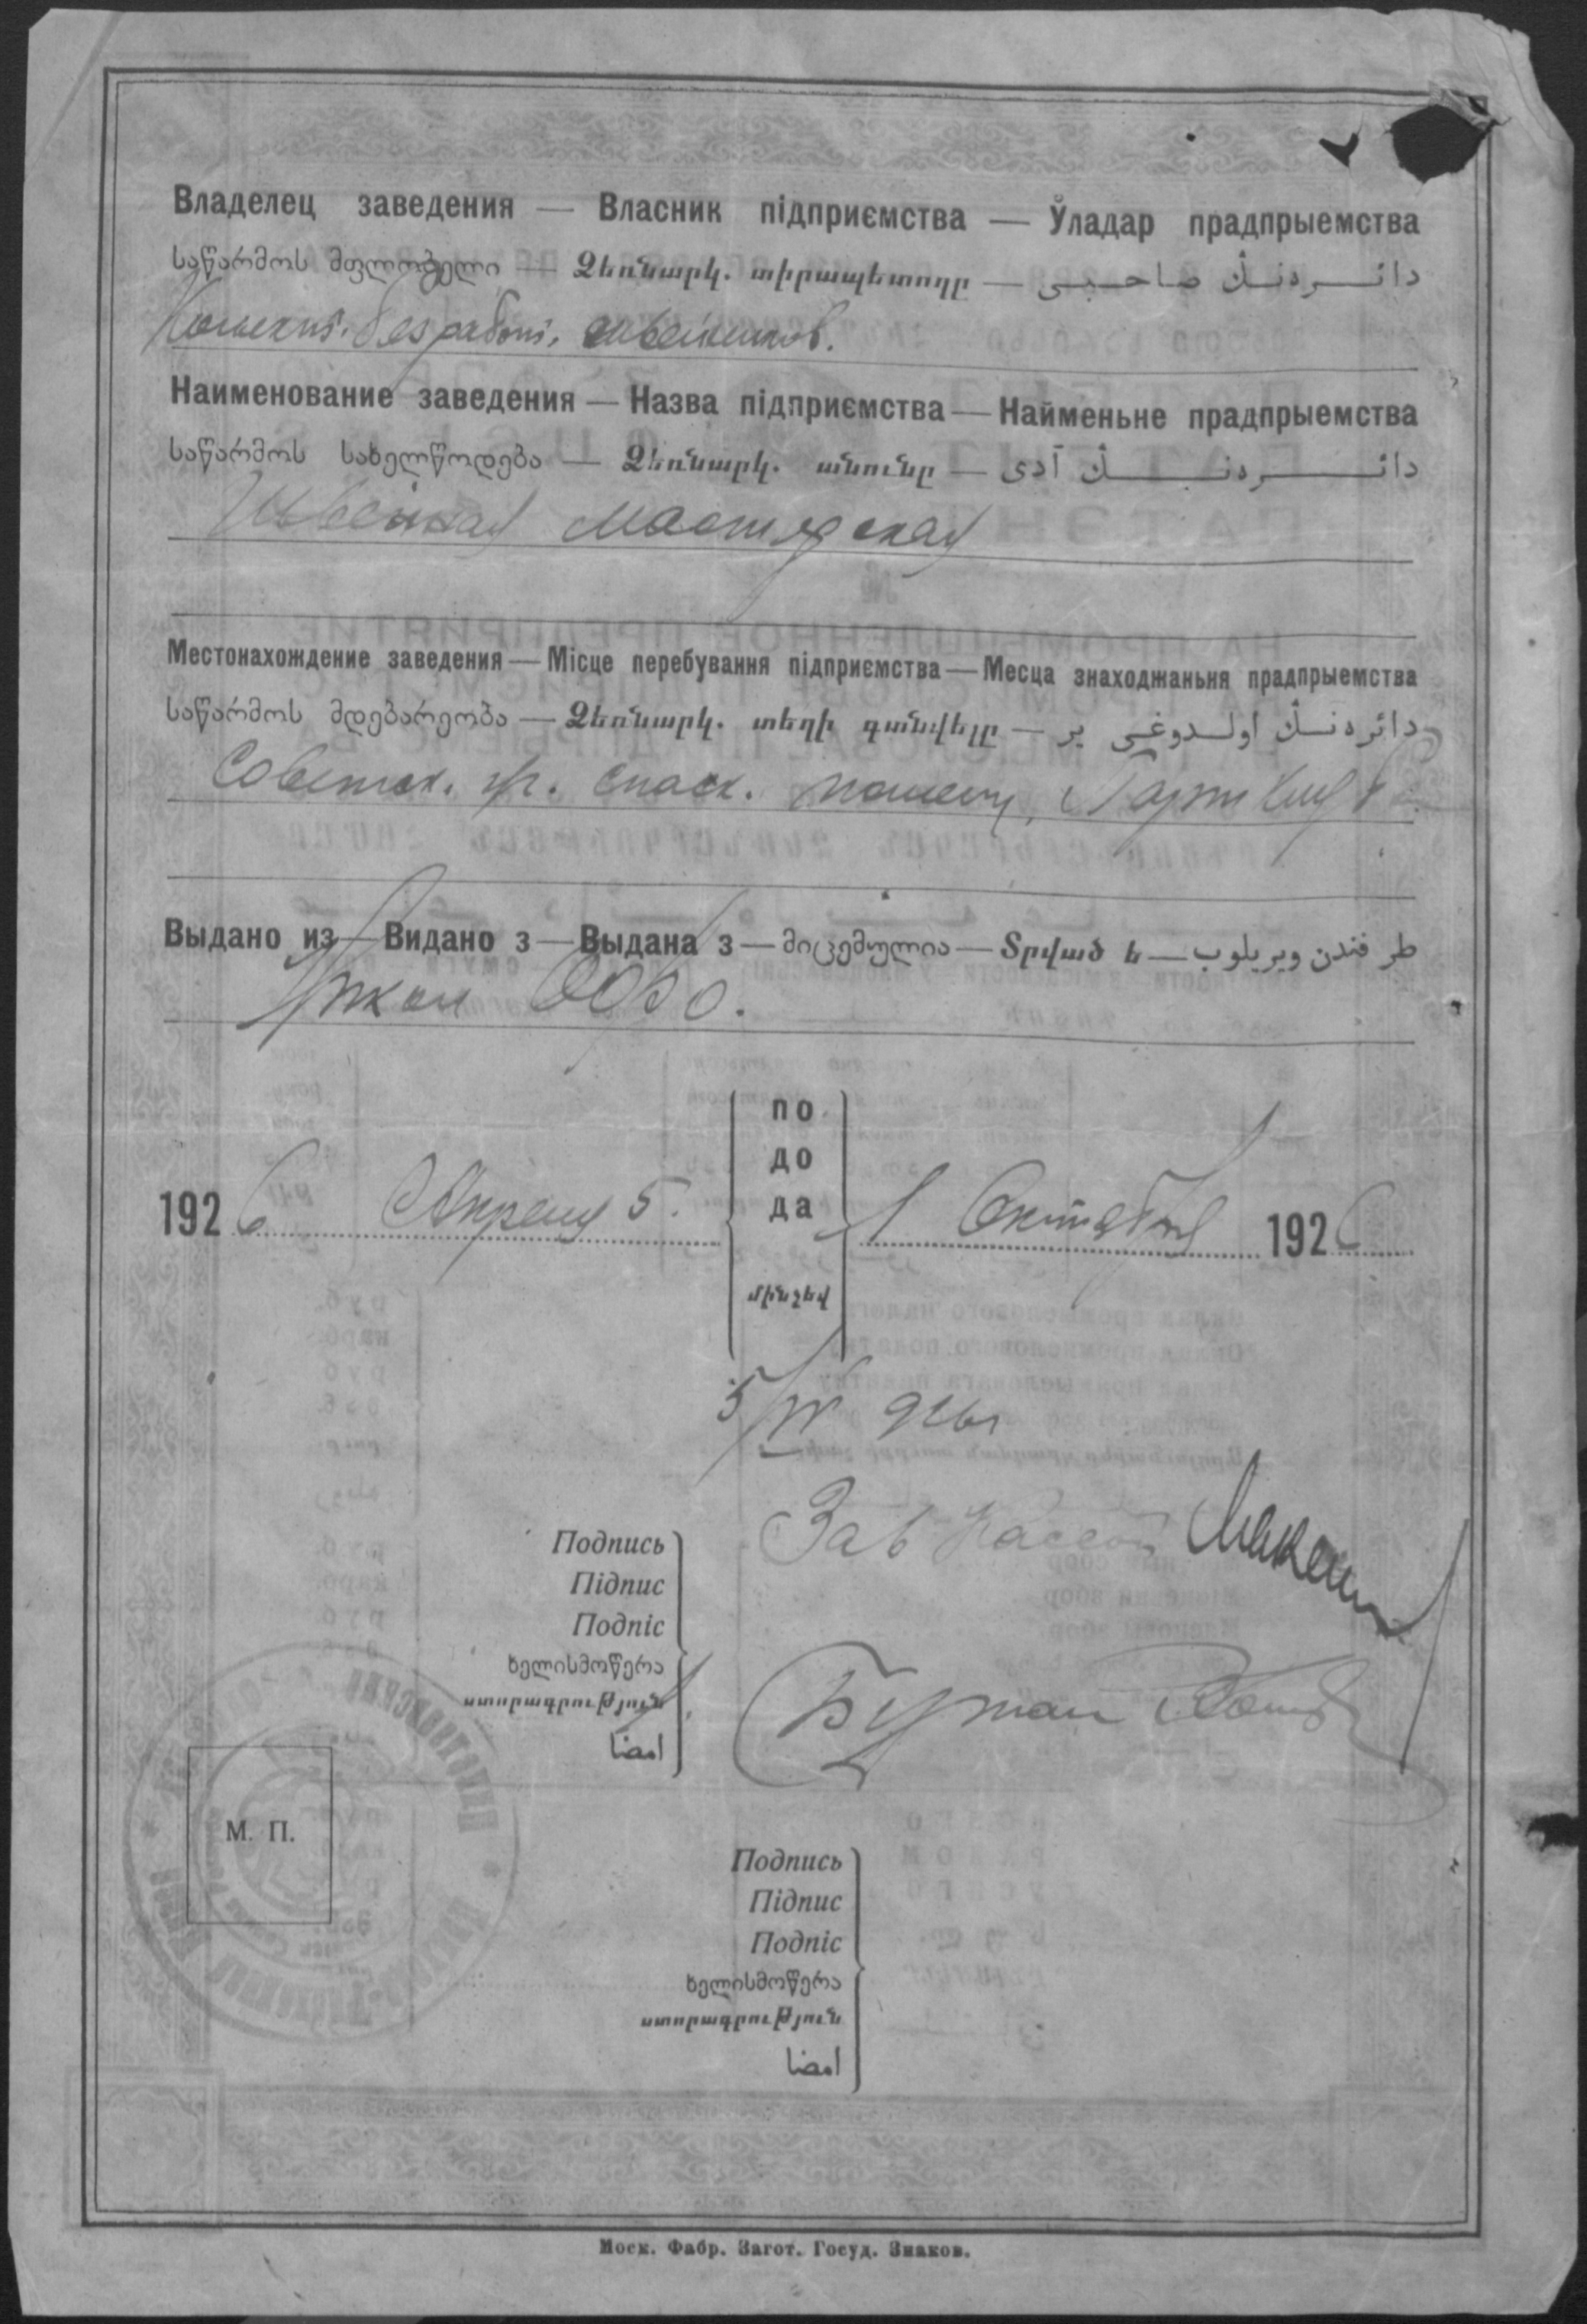 Владелец заведения — Власник підприємства — Ўладар прадпрыемства
საწარმოს მფლობელი — Ձեռնարկ. տիրապետողը — دائره‌نڭ صاحبی
Коллект. безработ. швейников.
Наименование заведения — Назва підприємства — Найменьне прадпрыемства
საწარმოს სახელწოდება — Ձեռնարկ. անունը — دائره‌نڭ آدی
Швейная мастерская
Местонахождение заведения — Місце перебування підприємства — Месца знаходжаньня прадпрыемства
საწარმოს მდებარეობა — Ձեռնարկ. տեղի գտնվելը — دائره‌نڭ اولدوغی یر
Советск. ул.
Выдано из — Видано з — Выдана з — მიცემულია — Տրված է — طرفندن ویریلوب
192 6 Апреля 5.
по
до
да
մինչեվ
1 Октября 192 6
5/IV 926 г
Зав Кассой
Подпись
Підпис
Подпіс
ხელისმოწერა
ստորագրություն
امضا
Бухгал
М. П.
Подпись
Підпис
Подпіс
ხელისმოწერა
ստորագրություն
امضا
Моск. Фабр. Загот. Госуд. Знаков.